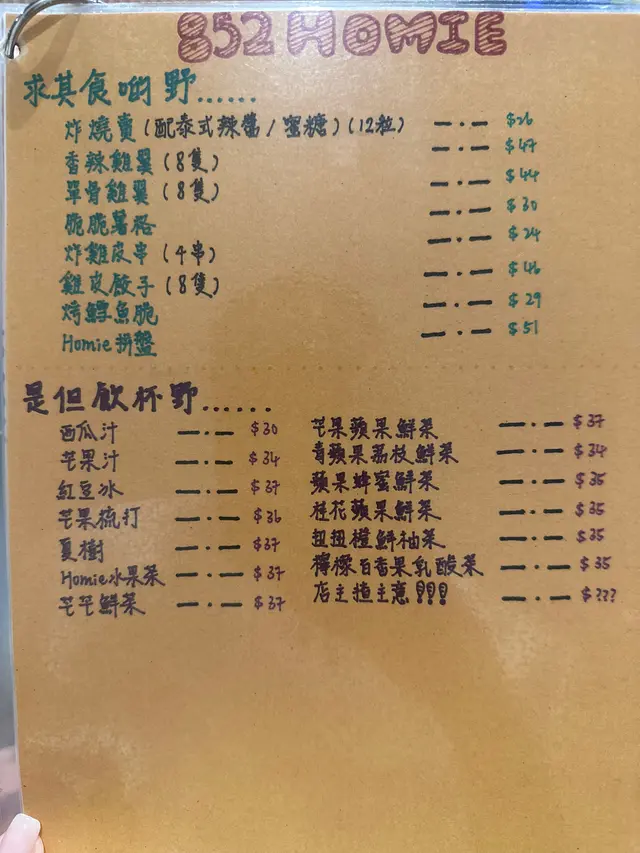 852 HOMIE
求其食啲野......
炸燒賣(配泰式辣醬/蜜糖)(12粒) —.— $26
香辣雞翼(8隻) —.— $47
單骨雞翼(8隻) —.— $44
脆脆薯格 —.— $30
炸雞皮串(4串) —.— $24
雞皮餃子(8隻) —.— $46
烤鱈魚脆 —.— $29
Homie拼盤 —.— $51
是但飲杯野......
西瓜汁 —.— $30
芒果汁 —.— $34
紅豆冰 —.— $37
芒果梳打 —.— $36
夏樹 —.— $37
Homie水果茶 —.— $37
芒芒鮮茶 —.— $37
芒果蘋果鮮茶 —.— $37
青蘋果荔枝鮮茶 —.— $34
蘋果蜂蜜鮮茶 —.— $35
桂花蘋果鮮茶 —.— $35
扭扭橙鮮柚茶 —.— $35
檸檬百香果乳酸茶 —.— $35
店主揸主意!!! —.— $???